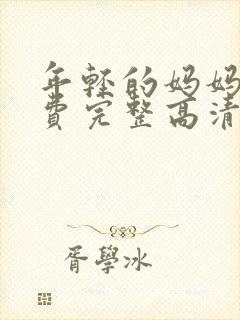 年轻的妈妈
费完整高清
胥學冰